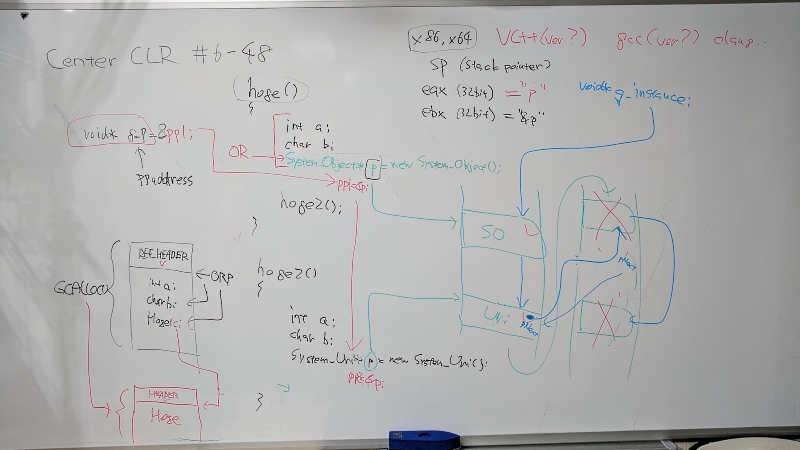 Center CLR #6-48
x86, x64 VC++(ver?) gcc(ver?) clang..
SP (stack pointer)
eax (32bit) = "p"
ebx (32bit) = "&p"
void* g_instance;
hoge()
{
int a;
char b;
System_Object* p = new System_Object();
pp1=&p;
hoge2();
}
void* g_p = &pp1;
OR
pp address
hoge2()
{
int a;
char b;
System_Uni* p = new System_Uni();
pp2=&p;
}
GCAlloc()
REF_HEADER
int a;
char b;
Hoge c;
ORP
HEADER
Hoge
SO
Uni